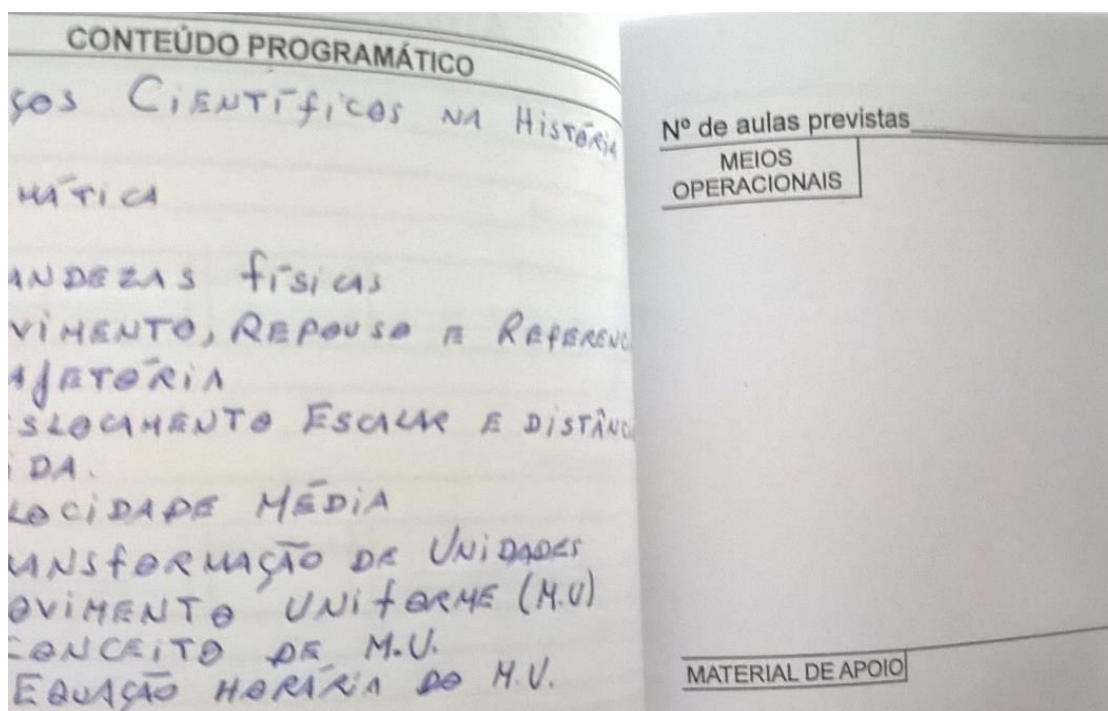 CONTEÚDO PROGRAMÁTICO
ços CIENTÍFICOS NA HISTÓRIA
MÁTICA
ANDEZAS FÍSICAS
VIMENTO, REPOUSO E REFERENC
AJETÓRIA
SLOCAMENTO ESCALAR E DISTÂNC
IDA.
LOCIDADE MÉDIA
RANSFORMAÇÃO DE UNIDADES
OVIMENTO UNIFORME (M.U)
CONCEITO DE M.U.
EQUAÇÃO HORÁRIA DO M.U.
Nº de aulas previstas
MEIOS
OPERACIONAIS
MATERIAL DE APOIO